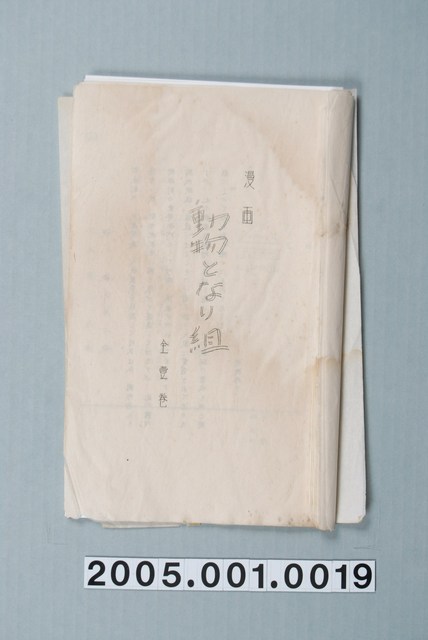 漫画
動物となり組
全壹巻
2005.001.0019